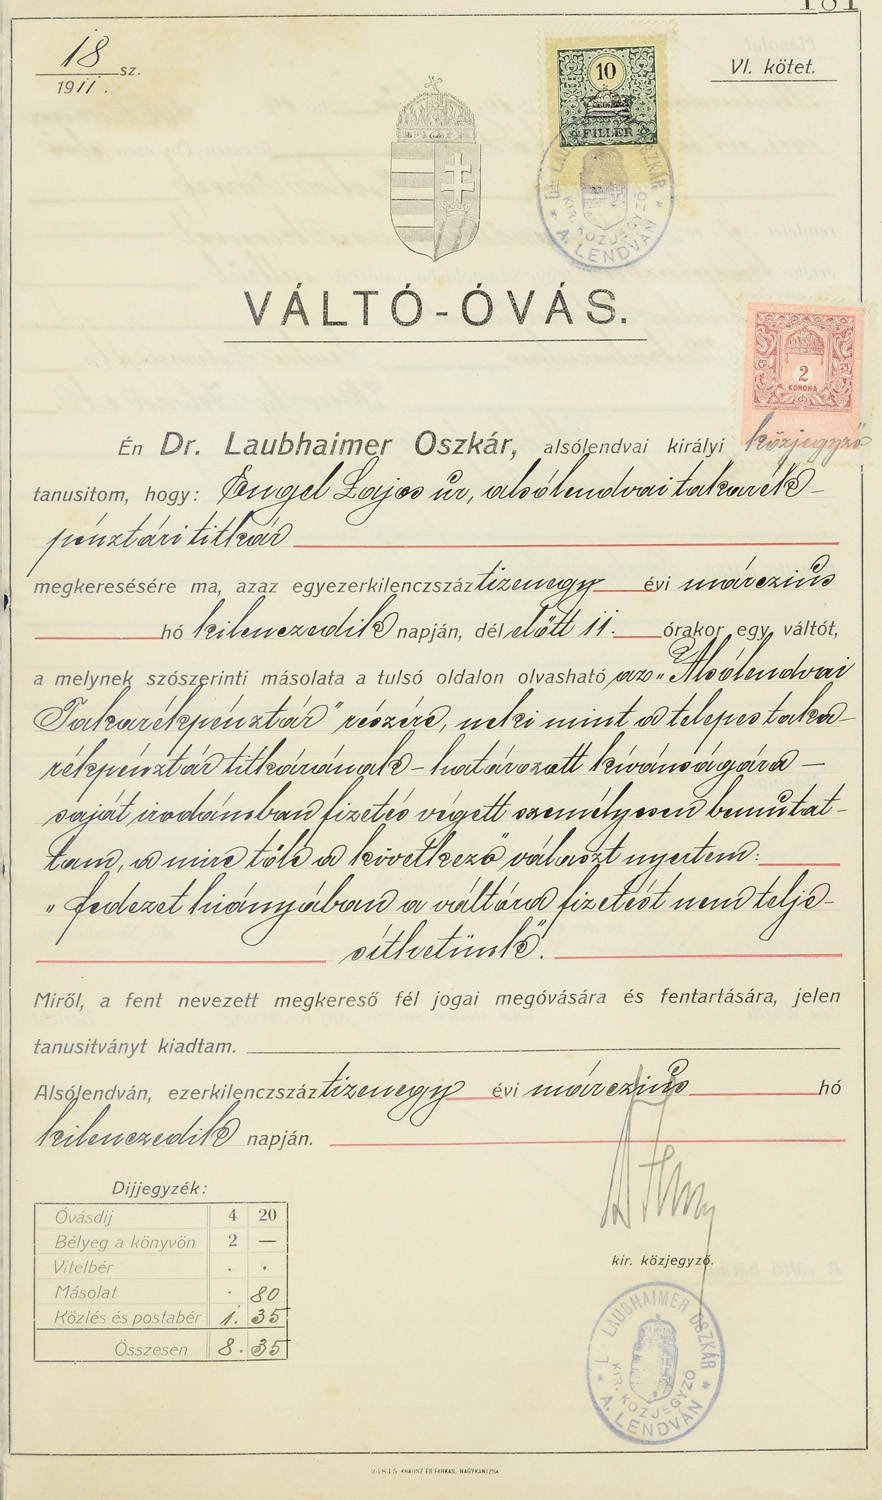 181
18
1911. sz.
VI. kötet.
10
FILLÉR
Dr. LAUBHAIMER OSZKÁR
KIR. KÖZJEGYZŐ
A. LENDVÁN
VÁLTÓ-ÓVÁS.
2
KORONA
Én Dr. Laubhaimer Oszkár, alsólendvai királyi közjegyző
tanusitom, hogy: Engel Lajos úr, alsólendvai takarék-
pénztári titkár
megkeresésére ma, azaz egyezerkilenczszáz tizenegy évi márczius
hó kilenczedik napján, dél előtt 11. órakor egy váltót,
a melynek szószerinti másolata a tulsó oldalon olvasható, az „Alsólendvai
Takarékpénztár" részére, neki mint a telepes taka-
rékpénztár titkárának – határozott kivánságára –
saját irodámban fizetés végett személyesen bemutat-
tam, a mire tőle a következő választ nyertem:
„fedezet hiányában a váltóra fizetést nem telje-
síthetünk".
Miről, a fent nevezett megkereső fél jogai megóvására és fentartására, jelen
tanusitványt kiadtam.
Alsólendván, ezerkilenczszáz tizenegy évi márczius hó
kilenczedik napján.
Dijjegyzék:
Óvásdij 4 20
Bélyeg a könyvön 2 —
Vitelbér . .
Másolat . 80
Közlés és postabér 1. 35
Összesen 8. 35
kir. közjegyző.
Dr. LAUBHAIMER OSZKÁR
KIR. KÖZJEGYZŐ
A. LENDVÁN
24845 KRAUSZ ÉS FARKAS, NAGYKANIZSA